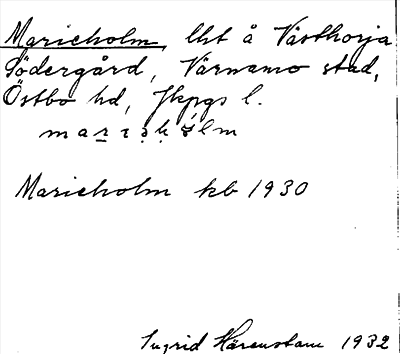 Marieholm, lht å Västhorja
Södergård, Värnamo stad,
Östbo hd, Jkpgs l.
Marieholm kb 1930
Ingrid Härenstam 1932